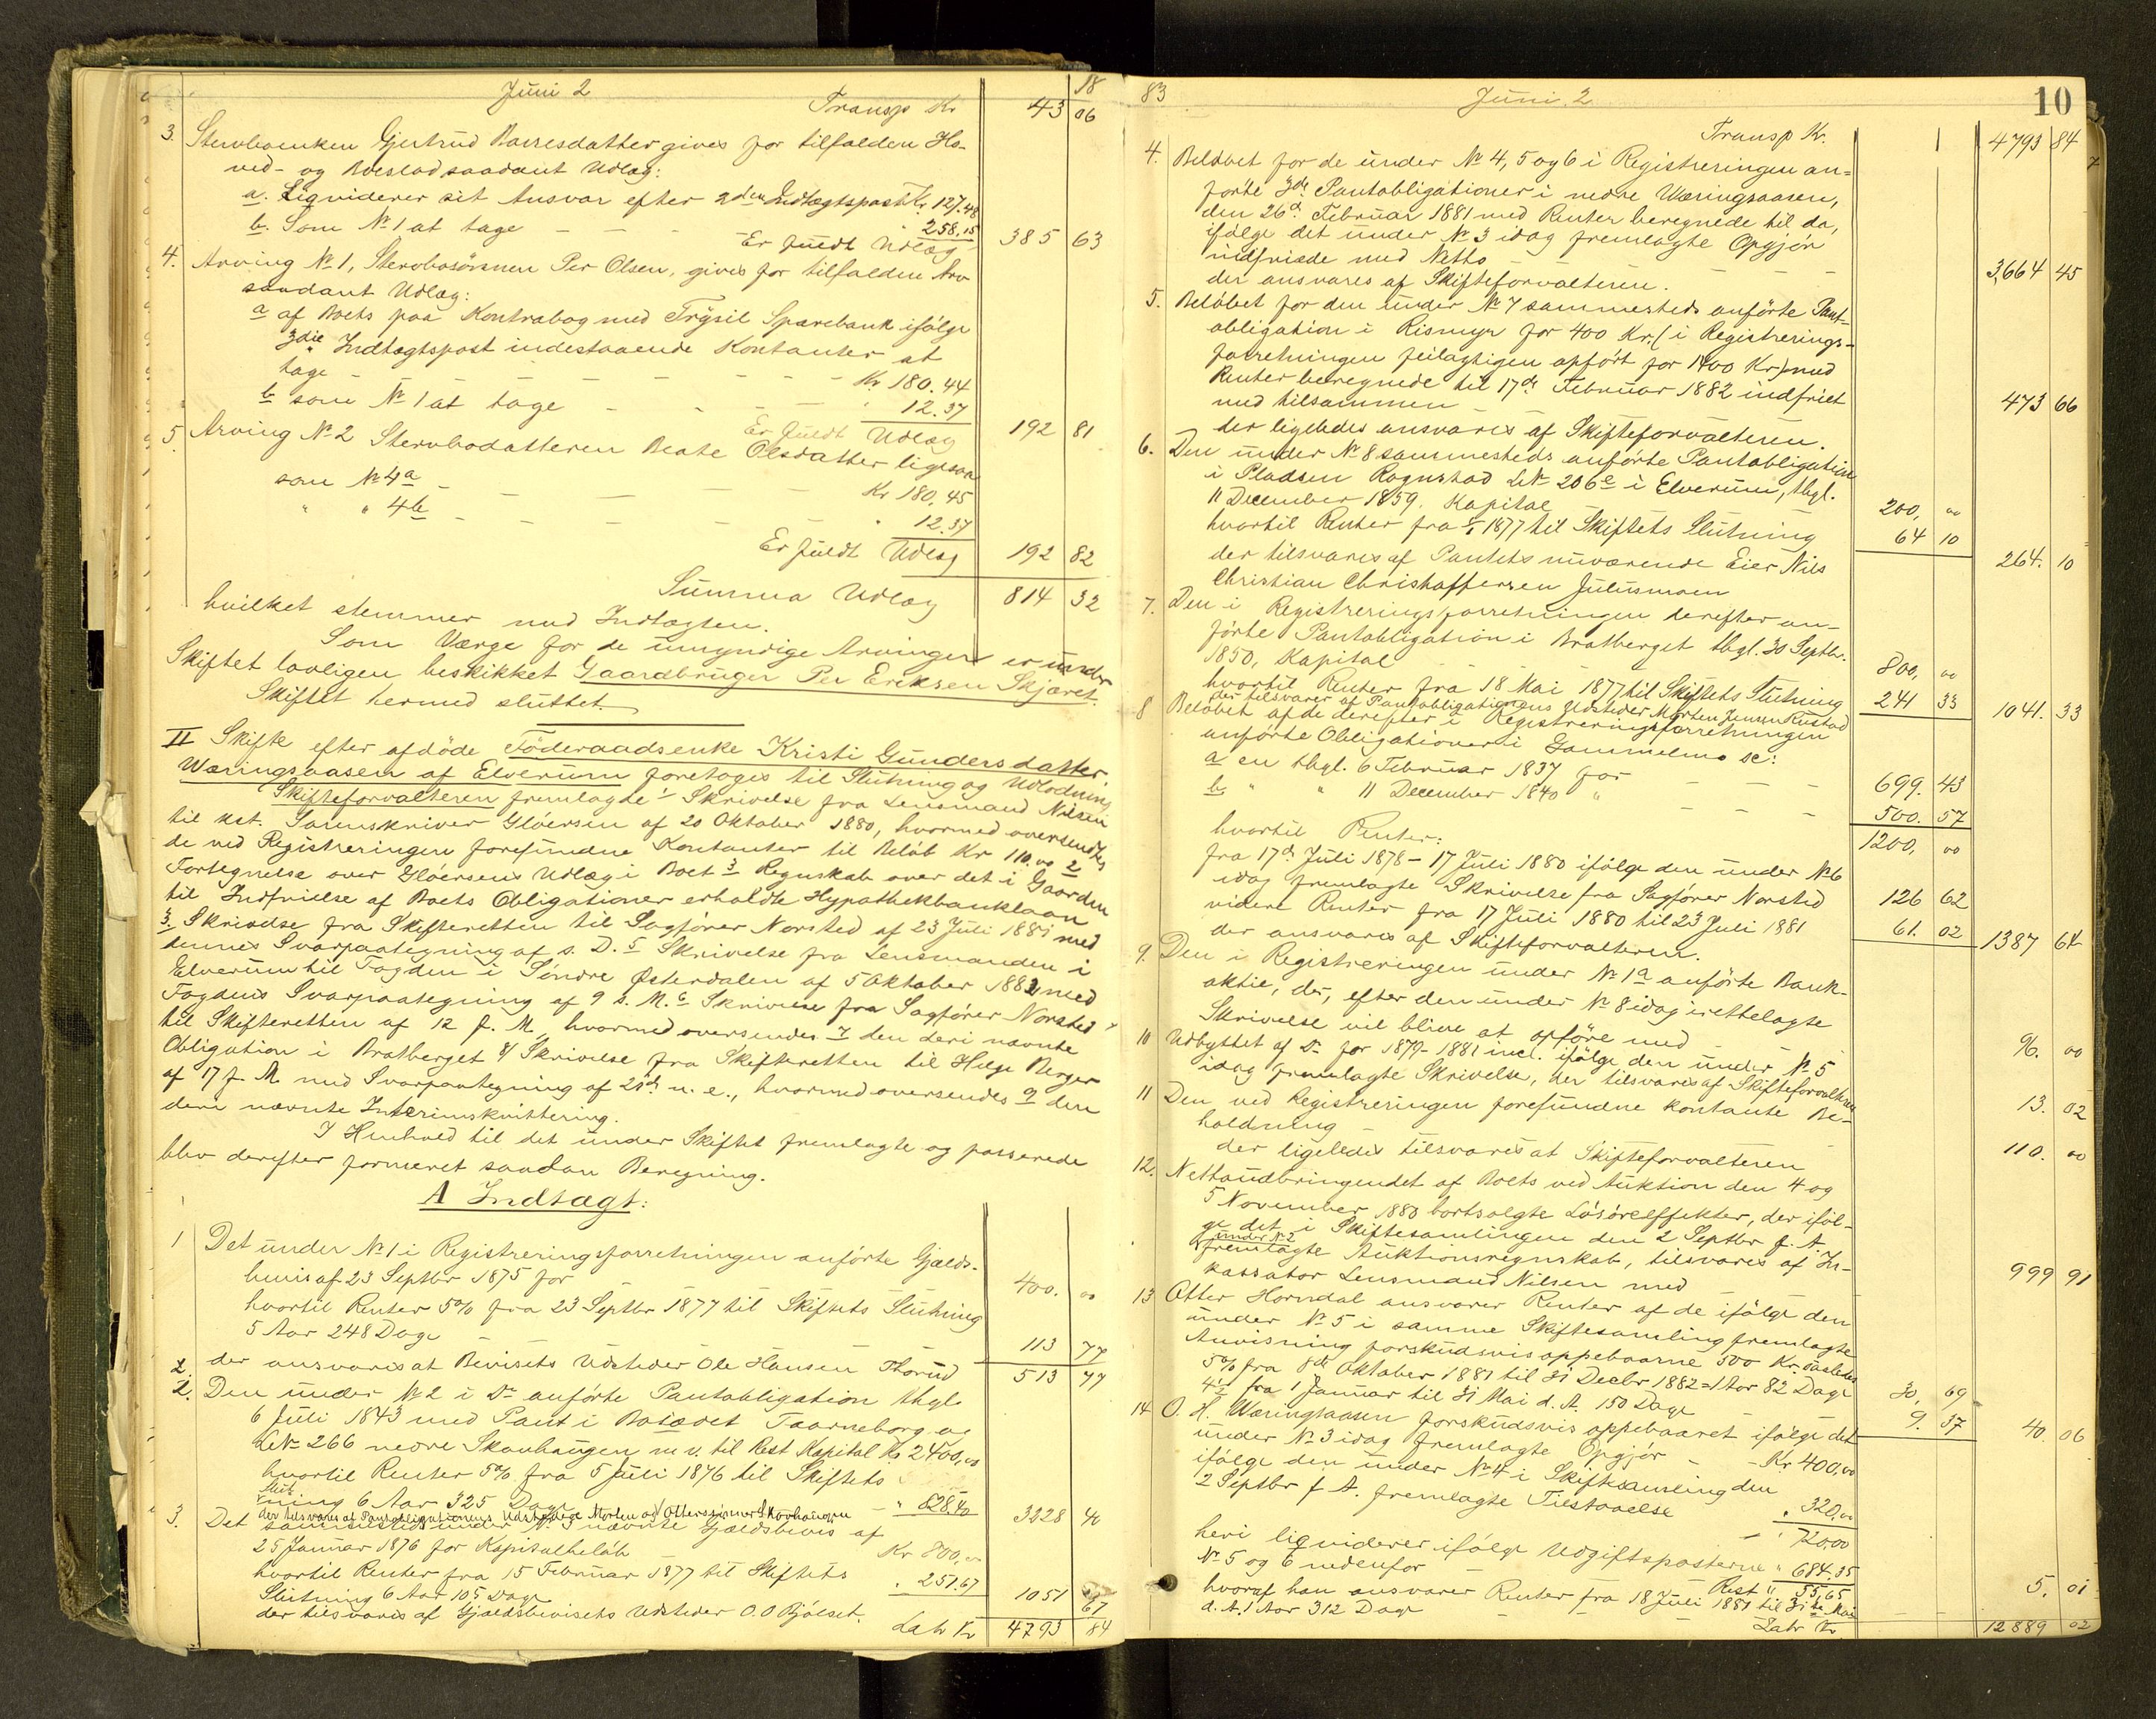 18
Juni 2
Transp Kr 43 06
3. Stervboenken Gjertrud Baresdatter gives for tilfalden Ho-
ved- og Boeslod saadant Udlæg:
a. Liqviderer sit Ansvar efter 2den Indtægtspost Kr. 127.48
b. Som No 1 at tage - - - " 258.15
Er fuldt Udlæg 385 63
4. Arving No 1, Stervbosönnen Per Olsen, gives for tilfalden Arv
saadant Udlæg:
a af Boets paa Kontrabog med Trysil Sparebank ifölge
3die Indtægtspost indestaaende Kontanter at
tage - - - - - Kr. 180.44
b som No 1 at tage - - - - " 12.37
Er fuldt Udlæg 192 81
5 Arving No 2 Stervbodatteren Beate Olsdatter ligesaa
som No 4a - - - - Kr 180,45
" " 4b - - - - " 12.37
Er fuldt Udlæg 192 82
Summa Udlæg 814 32
hvilket stemmer med Indtægten.
Som Værge for de umyndige Arvinger er under
Skiftet lovligen beskikket Gaardbruger Per Eriksen Skjæret.
Skiftet hermed sluttet.
II Skifte efter afdöde Föderaadsenke Kristi Gundersdatter
Væringsaasen af Elverum foretoges til Slutning og Udlodning
Skifteforvalteren fremlagde 1 Skrivelse fra Lensmand Nilsen
til kst. Sorenskriver Glöersen af 20 Oktober 1880, hvormed oversendtes
de ved Registreringen forefundne Kontanter til Belöb Kr 110,00 2
Fortegnelse over Glöersens Udlæg i Boet 3 Regnskab over det i Gaarden
til Indfrielse af Boets Obligationer erholdte Hypothekbanklaan
3. Skrivelse fra Skifteretten til Sagförer Norsted af 23 Juli 1881 med
dennes Svarpaategning af s. D. 5 Skrivelse fra Lensmanden i
Elverum til Fogden i Söndre Østerdalen af 5 Oktober 1882 med
Fogdens Svarpaategning af 9 s. M. 6 Skrivelse fra Sagförer Norsted
til Skifteretten af 12 f. M, hvormed oversendes 7 den deri nævnte
Obligation i Bratberget 8/ Skrivelse fra Skifteretten til Helge Berger
af 17 f. M med Svarpaategning af 21d. n. e., hvormed oversendes 9 den
deri nævnte Interimskvittering.
I Henhold til det under Skiftet fremlagte og passerede
blev derefter formeret saadan Beregning.
A Indtægt:
1 Det under No 1 i Registreringsforretningen anförte Gjælds-
bevis af 23 Septbr 1875 for - 400. 00
hvortil Renter 5% fra 23 Septbr 1877 til Skiftets Slutning
5 Aar 248 Dage - 113 77
der ansvares at Bevisets Udsteder Ole Hansen Thorud 513 77
2. Den under No 2 i Do anförte Pantobligation thgl.
6 Juli 1843 med Pant i Taarneborg og
LNo 266 nedre Skauhaugen m. v. til Rest Kapital Kr 2400,00
hvortil Renter 5% fra 5 Juli 1876 til Skiftets
Slut
ning 6 Aar 325 Dage - " 828.40 3228 40
der tilsvares af Pantobligationens Udstedere Morten og Skovhaugen
3. Det sammesteds under No 3 nævnte Gjældsbevis af
25 Januar 1876 for Kapitalbelöb Kr 800,00
hvortil Renter fra 15 Februar 1877 til Skiftets
Slutning 6 Aar 105 Dage " 251.67 1051 67
der tilsvares af Gjældsbevisets Udsteder O. O Bjölset.
Latr Kr 4793 84
83 Juni 2 10
Transp Kr. 4793 84
4. Belöbet for de under No 4, 5 og 6 i Registreringen an=
förte 3de Pantobligationer i nedre Væringsaasen,
den 26d. Februar 1881 med Renter beregnede til da,
ifölge det under No 3 idag fremlagte Opgjör
indfriede med Netto - - - - - 3,664 45
der ansvares af Skifteforvalteren.
5. Belöbet for den under No 7 sammesteds anförte Pant-
obligation i Rismyr for 400 Kr. (i Registrerings-
forretningen feilagtigen opfört for 1400 Kr) med
Renter beregnede til 17de Februar 1882 indfriet
med tilsammen - - - 473 66
der ligeledes ansvares af Skifteforvalteren.
6. Den under No 8 sammesteds anförte Pantobligation
i Pladsen Rognstad LNo 206e i Elverum, thgl.
11 December 1859. Kapital 200, 00
hvortil Renter fra 1877 til Skiftets Slutning 64 10
der tilsvares af Pantets nuværende Eier Nils 264. 10
Christian Christoffersen Julusmoen
7. Den i Registreringsforretningen derefter an-
förte Pantobligation i Bratberget thgl. 30 Septbr.
1850, Kapital 800, 00
hvortil Renter fra 18 Mai 1877 til Skiftets Slutning 241 33 1041. 33
der tilsvares af Pantobligationens Udsteder Morten Jensen Rustad
8 Belöbet af de derefter i Registreringsforretningen
anförte Obligationer i Gammelmo sc:
a en thgl. 6 Februar 1837 for - - - 699. 43
b. " " 11 December 1840 " - - - 500. 57
1200, 00
hvortil Renter:
fra 17d Juli 1878 - 17 Juli 1880 ifölge den under No 6
idag fremlagte Skrivelse fra Sagförer Norsted 126 62
videre Renter fra 17 Juli 1880 til 23 Juli 1881 61. 02 1387 64
der ansvares af Skifteforvalteren.
9. Den i Registreringen under No 1a anförte Bank-
aktie, der, efter den under No 8 idag irettelagte
Skrivelse vil blive at opföre med 96. 00
10 Udbyttet af Do for 1879-1881 incl. ifölge den under No 5
idag fremlagte Skrivelse, der tilsvares af Skifteforvalteren 13. 02
11 Den ved Registreringen forefundne kontante Be-
holdning - 110. 00
der ligeledes tilsvares at Skifteforvalteren
12. Nettoudbringendet af Boets ved Auktion den 4 og
5 November 1880 bortsolgte Lösöreffekter, der iföl-
ge det i Skiftesamlingen den 2 Septbr f. A.
under No 2
fremlagte Auktionsregnskab, tilsvares af In-
kassator Lensmand Nilsen med 999 91
13 Otter Horndal ansvarer Renter af de ifölge den
under No 5 i samme Skiftesamling fremlagte
Anvisning forskudsvis oppebaarne 500 Kr. saaledes
5% fra 8de Oktober 1881 til 31 Decbr 1882 = 1 Aar 82 Dage 30, 69
fra 1 Januar til 31 Mai d. A. 150 Dage 9. 37 40. 06
14 O. H. Væringsaasen forskudsvis oppebaaret ifölge det
under No 3 idag fremlagte Opgjör - - Kr 400,00
ifölge den under No 4 i Skiftesamling den
2 Septbr f A. fremlagte Tilstaaelse " 320,00
- " 720,00
heri liqviderer ifölge Udgiftsposterne
No 5 og 6 nedenfor - " 684.35
Rest " 35,65
hvoraf han ansvarer Renter fra 18 Juli 1881 til 31te Mai
d. A. 1 Aar 312 Dage - - - 5. 01
Latr Kr 12889 02